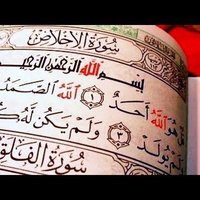 سُورَةُ الْإِخْلَاصِ
بِسْمِ اللَّهِ الرَّحْمَٰنِ الرَّحِيمِ
هُوَ اللَّهُ أَحَدٌ ١ اللَّهُ الصَّمَدُ
يُولَدْ ٣ وَلَمْ يَكُن لَّهُ
سُورَةُ الْفَلَقِ